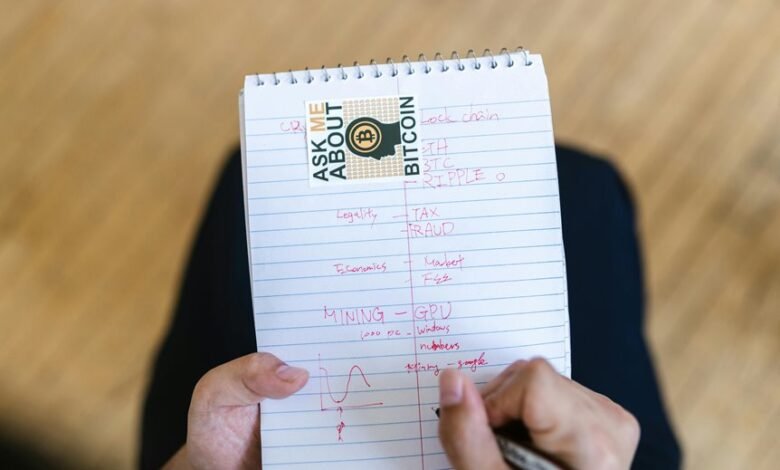 ASK ME
ABOUT
BITCOIN
CR lock chain
TH
BTC
- RIPPLE
Legality - TAX
- FRAUD
Economics - Market
- Fee
MINING - GPU
- Windows
numbers